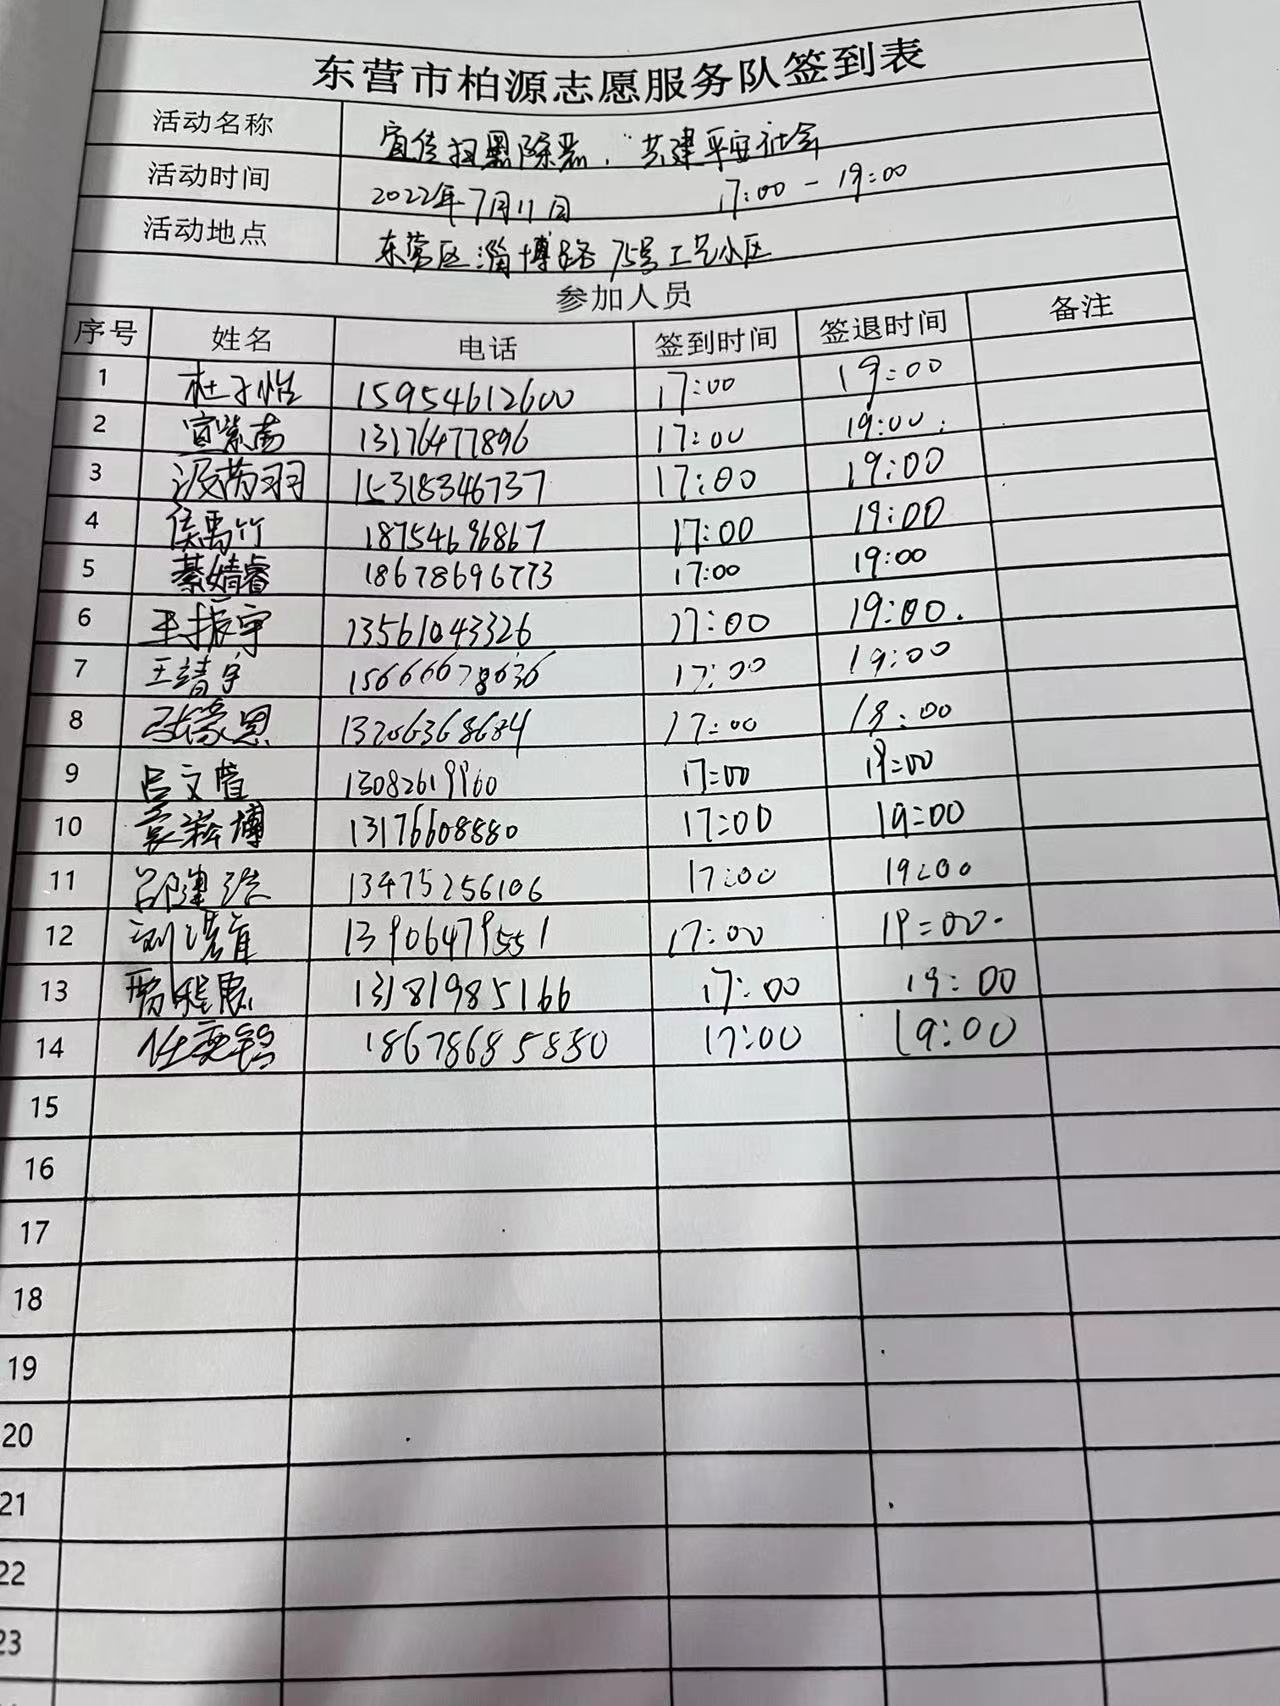 东营市柏源志愿服务队签到表
活动名称 宣传扫黑除恶，共建平安社会
活动时间 2022年7月11日 17:00-19:00
活动地点 东营区淄博路75号工艺小区
参加人员
序号 姓名 电话 签到时间 签退时间 备注
1 杜子怡 15954612600 17:00 19:00
2 13176477896 17:00 19:00
3 15318346737 17:00 19:00
4 侯禹竹 18754696867 17:00 19:00
5 綦婧睿 18678696773 17:00 19:00
6 王振宇 13561043326 17:00 19:00
7 王靖宇 15666678636 17:00 19:00
8 张豪恩 17:00 19:00
9 吕文萱 13082619960 17:00 19:00
10 13176608880 17:00 19:00
11 邵建浩 13475256106 17:00 19:00
12 13906479551 17:00 19:00
13 13181985166 17:00 19:00
14 18678685880 17:00 19:00
15
16
17
18
19
20
21
22
23